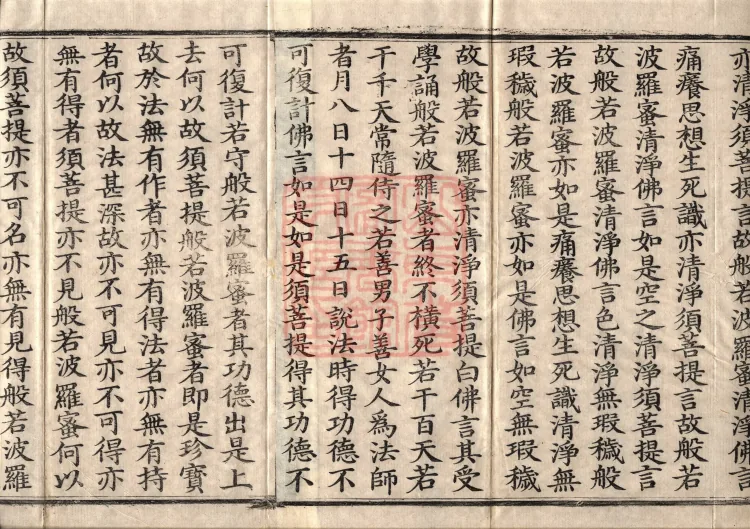 亦清淨須菩提言故般若波羅蜜清淨佛言
痛癢思想生死識亦清淨須菩提言故般若
波羅蜜清淨佛言如是空之清淨須菩提言
故般若波羅蜜清淨佛言色清淨無瑕穢般
若波羅蜜亦如是痛癢思想生死識清淨無
瑕穢般若波羅蜜亦如是佛言如空無瑕穢
故般若波羅蜜亦清淨須菩提白佛言其受
學誦般若波羅蜜者終不橫死若干百天若
干千天常隨侍之若善男子善女人爲法師
者月八日十四日十五日說法時得功德不
可復計佛言如是如是須菩提得其功德不
可復計若守般若波羅蜜者其功德出是上
去何以故須菩提般若波羅蜜者即是珍寶
故於法無有作者亦無有得法者亦無有持
者何以故法甚深故亦不可見亦不可得亦
無有得者須菩提亦不見般若波羅蜜何以
故須菩提亦不可名亦無有見得般若波羅